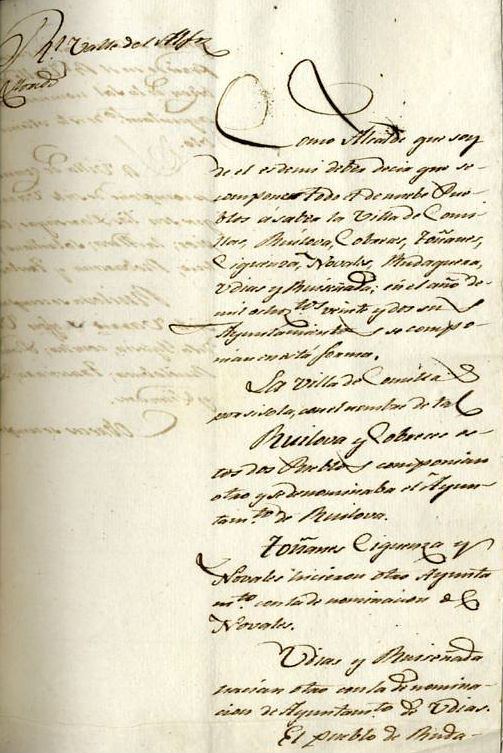 Rl. Valle del Alfz
Lloredo
Como Alcalde que soy
de el es de mi deber decir que se
compone todo el de nuebe Pue-
blos a saber la Villa de Comi-
llas, Ruilova, Cobreces, Toñanes,
Ciguenza, Novales, Rudaguera,
Udias y Ruiseñada; en el año de
mil ochotos. veinte y dos sus
Ayuntamientos se compo-
nian en esta forma.
La Villa de Comillas
por si sola, con el nombre de la
Ruilova y Cobreces es-
tos dos Pueblos componian
otro y se denominaba el Ayun-
tamto. de Ruilova.
Toñanes Ciguenza y
Novales hicieron otro Ayunta
mto. con la denominacion de
Novales.
Udias y Ruiseñada
hacian otro con la denomina-
cion de Ayuntamto. de Udias.
El pueblo de Ruda-